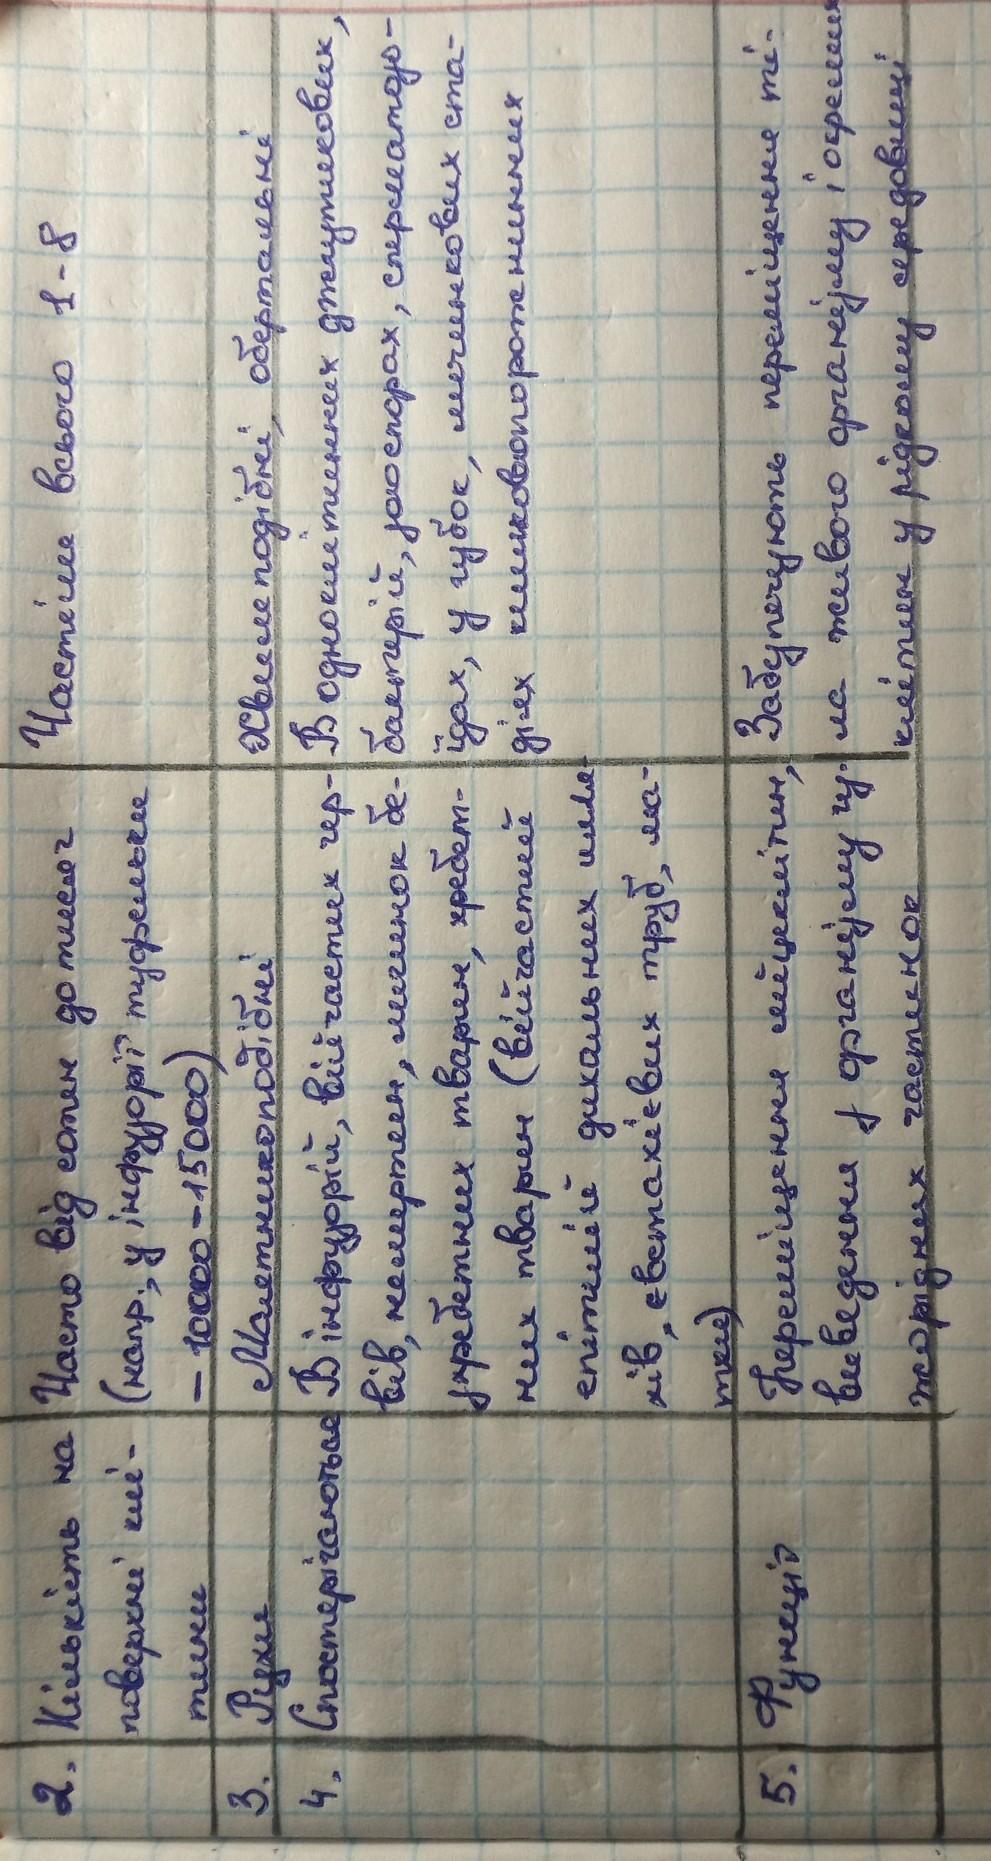 2. Кількість на
поверхні клі-
тини
Часто від сотен до тисяч
(напр., у інфузорії туфельки
– 10000-15000)
Частіше всього 1-8
3. Рухи
Маятникоподібні
Хвилеподібні, обертальні
4. Спостерігаються
В інфузорій, війчастих чер-
вів, немертин, личинок бе-
зхребетних тварин, хребет-
них тварин (війчастий
епітелій дихальних шля-
хів, євстахієвих труб, ма-
тки)
В одноклітинних джгутикових,
бактерій, зооспорах, сперматозо-
їдах, у губок, личинкових ста-
діях кишковопорожнинних
5. Функції
Переміщення яйцеклітин,
виведення з організму чу-
жорідних частинок
Забезпечують переміщення ті-
ла живого організму і окремих
клітин у рідкому середовищі